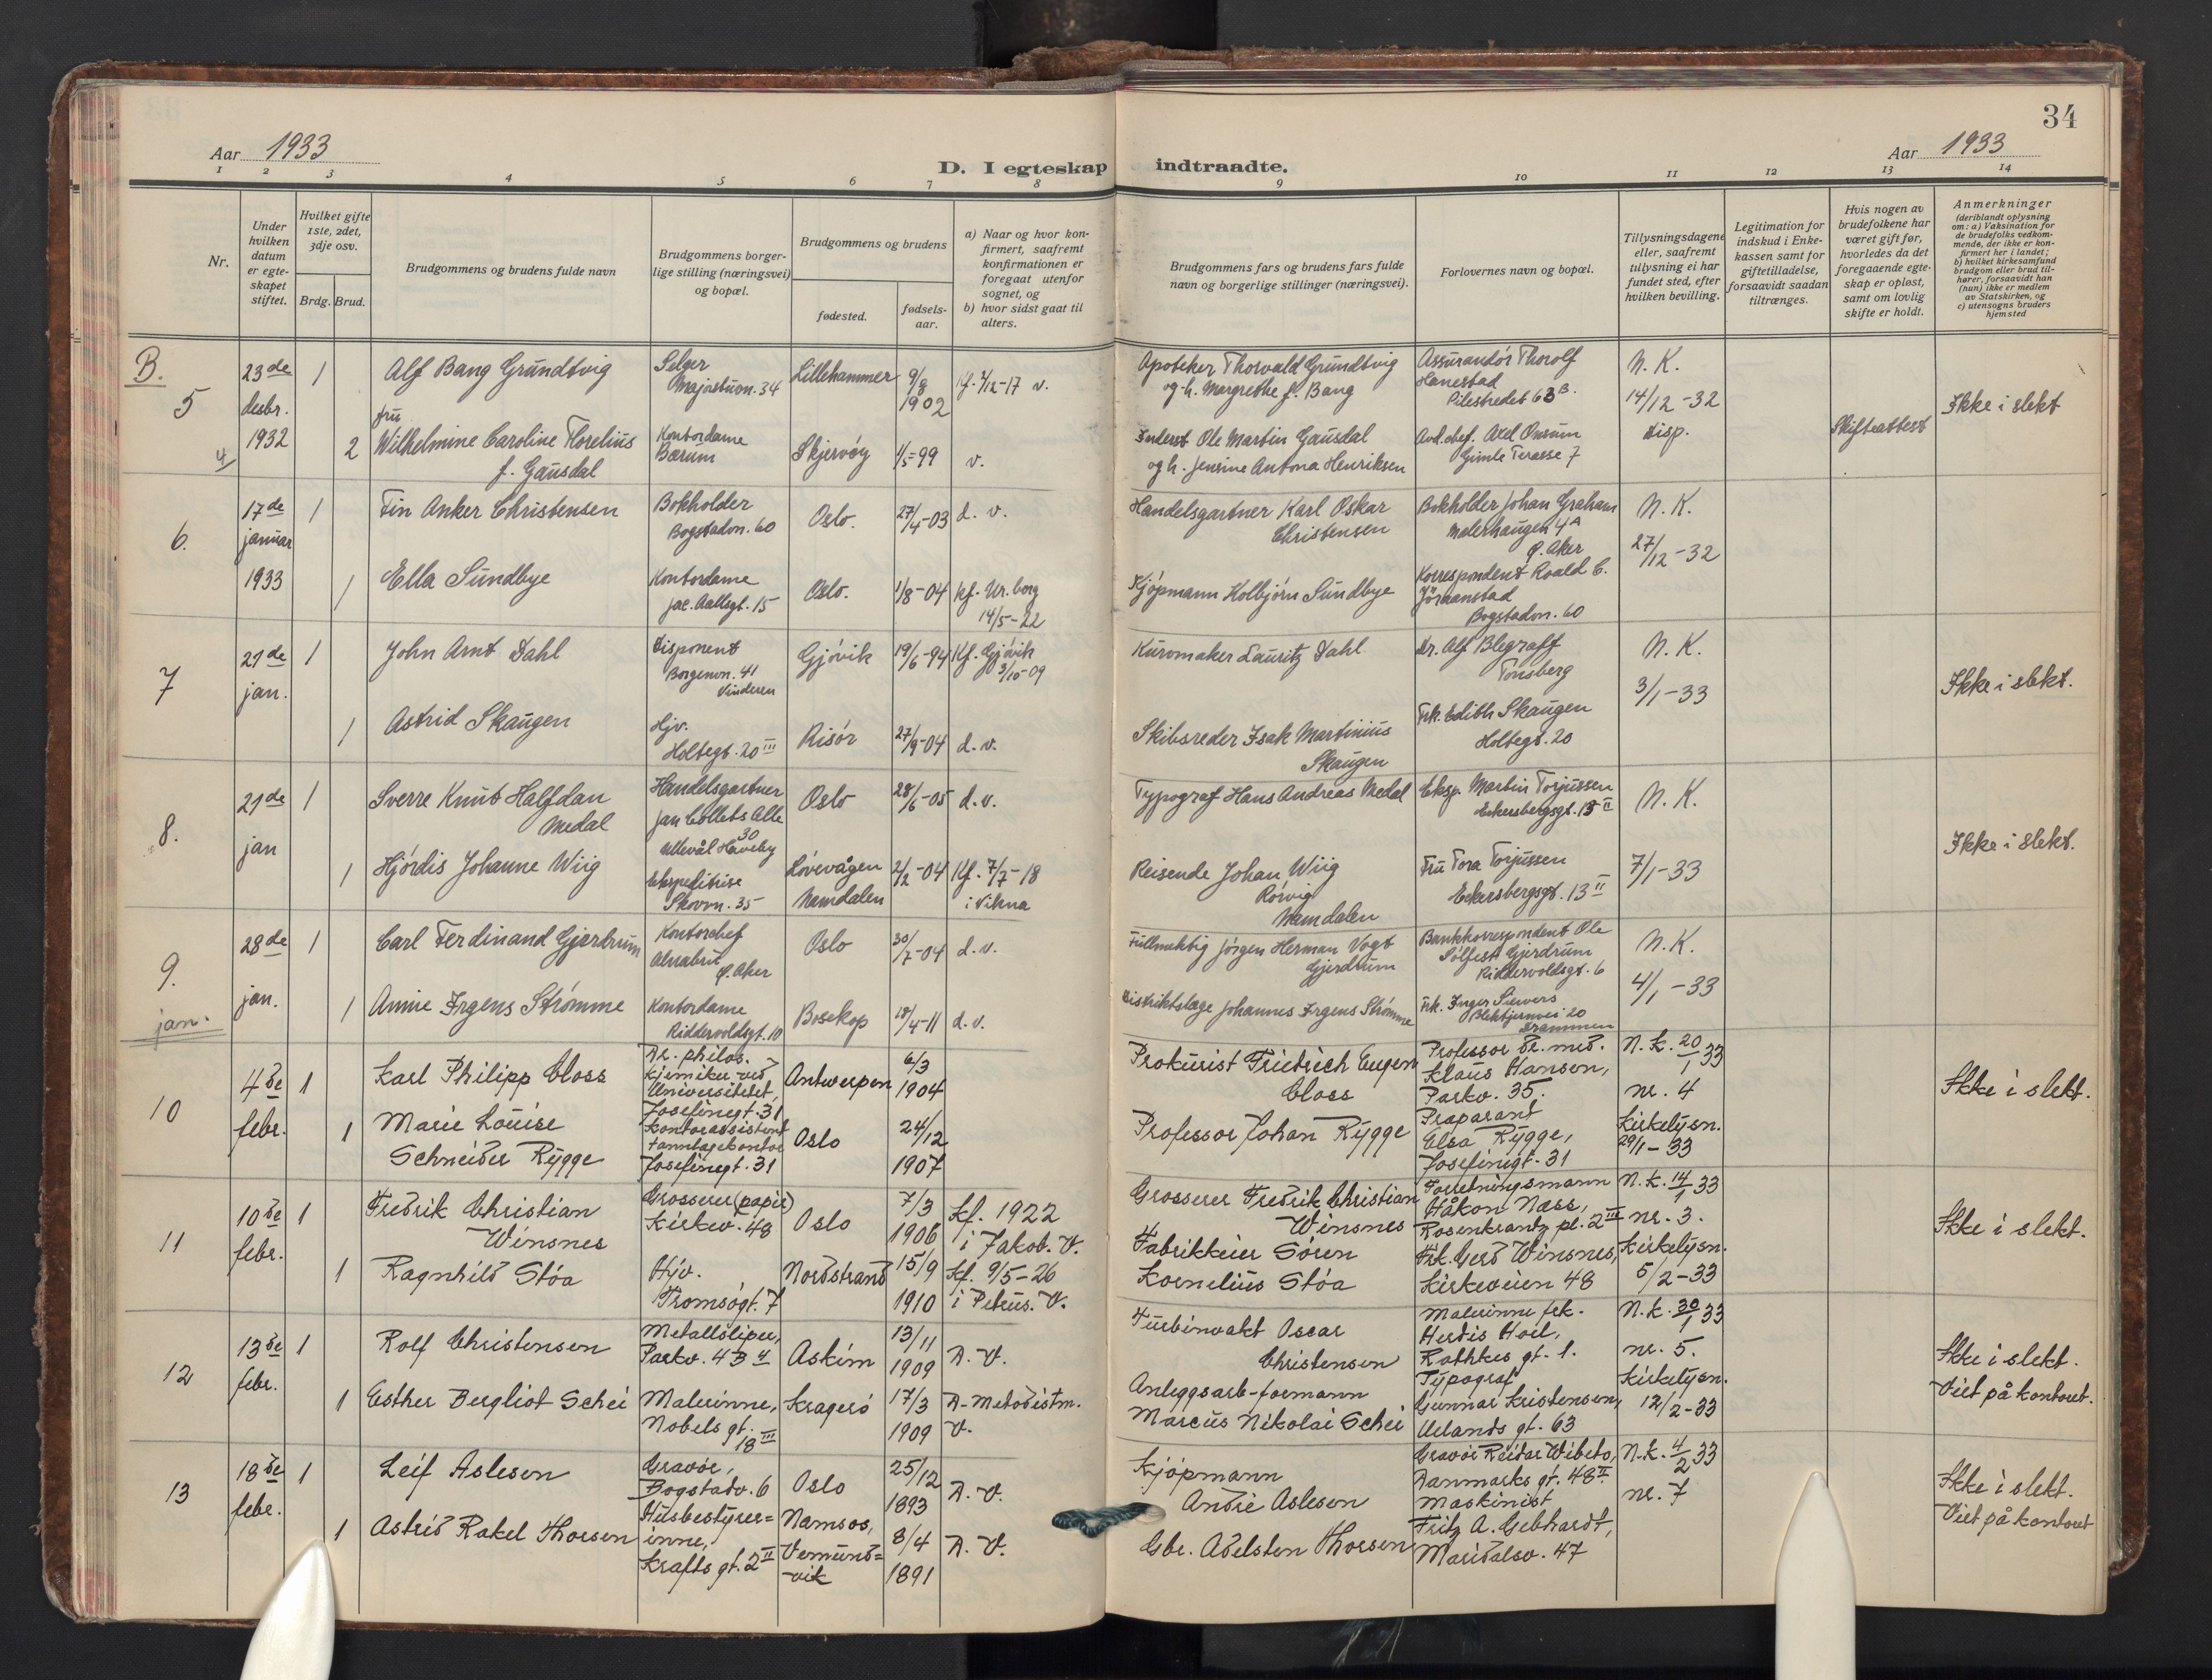 34
Aar 1933
D. I egteskap indtraadte.
Aar 1933
1 2 3 4 5 6 7 8 9 10 11 12 13 14
Nr.
Under hvilken datum er egteskapet stiftet.
Hvilket gifte 1ste, 2det, 3dje osv.
Brdg. Brud.
Brudgommens og brudens fulde navn
Brudgommens borgerlige stilling (næringsvei) og bopæl.
Brudgommens og brudens
fødested.
fødselsaar.
a) Naar og hvor konfirmert, saafremt konfirmationen er foregaat utenfor sognet, og
b) hvor sidst gaat til alters.
Brudgommens fars og brudens fars fulde navn og borgerlige stillinger (næringsvei).
Forlovernes navn og bopæl.
Tillysningsdagene eller, saafremt tillysning ei har fundet sted, efter hvilken bevilling.
Legitimation for indskud i Enkekassen samt for giftetilladelse, forsaavidt saadan tiltrænges.
Hvis nogen av brudefolkene har været gift før, hvorledes da det foregaaende egteskap er opløst, samt om lovlig skifte er holdt.
Anmerkninger
(deriblandt oplysning om: a) Vaksination for de brudefolks vedkommende, der ikke er konfirmert her i landet;
b) hvilket kirkesamfund brudgom eller brud tilhører, forsaavidt han (hun) ikke er medlem av Statskirken, og
c) utensogns bruders hjemsted
B.
5
4/
23de desbr. 1932
1
Alf Bang Grundtvig
Selger
Majorstuvn. 34
Lillehammer
9/8 1902
Kf. 7/12-17 v.
Apoteker Thorvald Grundtvig
og h. Margrethe f. Bang
Assurandør Thorolf
Hanestad
Pilestredet 63 B.
N. K.
14/12-32
disp.
Skifteattest
Ikke i slekt
2
fru
Wilhelmine Caroline Florelius
f. Gausdal
Kontordame
Bærum
Skjervøy
1/5-99
v.
Inderst Ole Martin Gausdal
og h. Jensine Antona Henriksen
Avd.chef. Axel Onsum
Gimle Terasse 7
6.
17de januar 1933
1
Fin Anker Christensen
Bokholder
Bogstadvn. 60
Oslo.
27/4-03
d. v.
Handelsgartner Karl Oskar
Christensen
Bokholder Johan Graham
Malerhaugen 4A
Ø. Aker
N. K.
27/12-32
1
Ella Sundbye
Kontordame
Jac. Aallsgt. 15
Oslo.
1/8-04
Kf. Ur.borg
14/5-22
Kjøpmann Kolbjørn Sundbye
Korrespondent Roald C.
Jöraanstad
Bogstadvn. 60
7
21de jan.
1
John Arnt Dahl
Disponent
Borgenvn. 41
Vinderen
Gjøvik
19/6-94
Kf. Gjøvik
3/10-09
Kurvmaker Lauritz Dahl
Dr. Alf Blegraff
Tønsberg
N. K.
3/1-33
Ikke i slekt.
1
Astrid Skaugen
Hjv.
Holtegt. 20 III
Risør
27/9-04
d. v.
Skibsreder Isak Martinius
Skaugen
Frk. Edith Skaugen
Holtegt. 20
8.
21de jan
1
Sverre Knut Halfdan
Medal
Handelsgartner
Jan Collets Alle
30
Ullevål Haveby
Oslo
28/6-05
d. v.
Typograf Hans Andreas Medal
Eksp. Martin Torjussen
Eckersbergsgt. 13 II
N. K.
7/1-33
Ikke i slekt.
1
Hjørdis Johanne Wiig
Ekspeditrise
Skovvn. 35
Løvevågen
Namdalen
2/12-04
Kf. 7/7-18
i Vikna
Reisende Johan Wiig
Rørvig
Namdalen
Fru Tora Torjussen
Eckersbergsgt. 13 II
9.
28de jan.
1
Carl Ferdinand Gjerdrum
Kontorchef
Alnabru
Ø. Aker
Oslo
30/7-04
d. v.
Fullmektig Jørgen Herman Vogt
Gjerdrum
Bankkorrespondent Ole
Sølfest Gjerdrum
Riddervoldsgt. 6
N. K.
4/1-33
jan.
1
Annie Irgens Strømme
Kontordame
Riddervoldsgt. 10
Bosekop
18/4-11
d. v.
Distriktslæge Johannes Irgens Strømme
Frk. Inger Sievers
Blektjernvei 20
Drammen
10
4de febr.
1
Karl Philipp Closs
Dr. philos.
Kjemiker ved
Universitetet,
Josefinegt. 31
Antwerpen
6/3 1904
Prokurist Friedrich Eugen
Closs
Professor Dr. med.
Klaus Hansen,
Parkv. 35.
N. K. 20/1 33
nr. 4
Kirkelysn.
29/1-33
Ikke i slekt.
1
Marie Louise
Schneider Rygge
Kontorassistent
Josefinegt. 31
Oslo
24/12 1907
Professor Johan Rygge
Præparant
Elsa Rygge,
Josefinegt. 31
11
10de febr.
1
Fredrik Christian
Winsnes
Grosserer (papir)
Kirkev. 48
Oslo
7/3 1906
Kf. 1922
i Jakob. V.
Grosserer Fredrik Christian
Winsnes
Forretningsmann
Håkon Næss,
Rosenkrantz pl. 2 III
N. k. 14/1 33
nr. 3.
Kirkelysn.
5/2-33
Ikke i slekt.
1
Ragnhild Støa
Hjv.
Tromsøgt. 7
Nordstrand
15/9 1910
Kf. 9/5-26
i Petrus. V.
Fabrikkeier Søren
Kornelius Støa
Frk. Gerd Winsnes,
Kirkeveien 48
12
13de febr.
1
Rolf Christensen
Metallsliper,
Parkv. 43 4
Askim
13/11 1909
D. V.
Turbinvakt Oscar
Christensen
Malerinne frk.
Herdis Hoel,
Rathkes gt. 1.
N. k. 30/1 33
nr. 5.
Kirkelysn.
12/2-33
Ikke i slekt.
Viet på kontoret.
1
Esther Bergliot Schei
Malerinne,
Nobels gt.
18 III
Kragerø
17/3 1909
D-Metodistm.
V.
Anleggsarb-formann
Marcus Nikolai Schei
Typograf
Gunnar Kristensen,
Uelands gt. 63
13
18de febr.
1
Leif Aslesen
Gravør,
Bogstadv. 6
Oslo
25/12 1893
D. V.
Kjøpmann
Andre Aslesen
Gravør Reidar Wibeto,
Danmarks gt. 48 II
N. k. 4/2 33
nr. 7
Ikke i slekt.
Viet på kontoret
1
Astrid Rakel Thorsen
Husbestyrer=
inne,
Krafts gt. 2 II
Namsos,
Vemund=
-vik
8/4 1891
D. V.
Gbr. Adelsten Thorsen
Maskinist
Fritz A. Gebhardt,
Maridalsv. 47